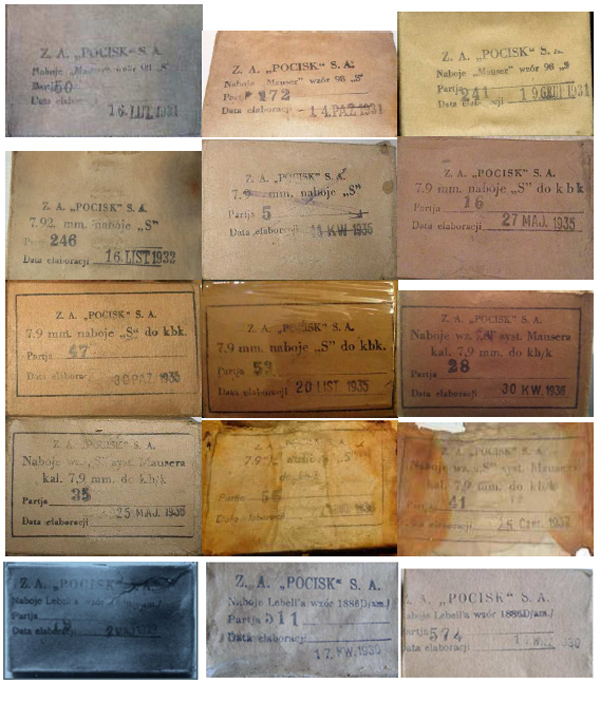 Z. A. „POCISK“ S. A.
Naboje „Mauser“ wzór 98 „S“
50
Data elaboracji
16. LUT. 1931
Z. A. „POCISK“ S. A.
Naboje „Mauser“ wzór 98 „S“
Partja 172
Data elaboracji 14. PAZ 1931
Z. A. „POCISK“ S. A.
Naboje „Mauser“ wzór 98 „S“
Partja 241
Data elaboracji 19 GRU 1931
Z. A. „POCISK“ S. A.
7.92. mm. naboje „S“
246
Data elaboracji 16. LIST 1932
Z. A. „POCISK“ S. A.
7.9 mm. naboje „S“
Partja 5
Data elaboracji 11 KW 1935
Z. A. „POCISK“ S. A.
7.9 mm. naboje „S“ do kbk
Partja 16
Data elaboracji 27 MAJ. 1935
Z. A. „POCISK“ S. A.
7.9 mm. naboje „S“ do kbk.
Partja 47
Data elaboracji 30 PAZ. 1935
Z. A. „POCISK“ S. A.
7.9 mm. naboje „S“ do kbk.
Partja 53
Data elaboracji 20 LIST 1935
Z. A. „POCISK“ S. A.
Naboje wz. „S“ syst. Mausera
kal. 7,9 mm. do kb/k
Partja 28
Data elaboracji 30 KW. 1936
Z. A. „POCISK“ S. A.
Naboje wz. „S“ syst. Mausera
kal. 7,9 mm. do kb/k
Partja 35
Data elaboracji 25 MAJ. 1936
Z. A. „POCISK“ S. A.
7.9 naboje „S“
Partja
Data elaboracji
Z. A. „POCISK“ S. A.
Naboje wz. „S“ syst. Mausera
kal. 7,9 mm. do kb/k
Partja 41
Data elaboracji
Z. A. „POCISK“ S. A.
Naboje Lebell'a wzór
Partja
Data elaboracji
Z. A. „POCISK“ S. A.
Naboje Lebell'a wzór 1886D/am./
Partja 511
Data elaboracji
17. KW. 1930
Z. A. „POCISK“ S. A.
Naboje Lebell'a wzór 1886D/am./
574
elaboracji